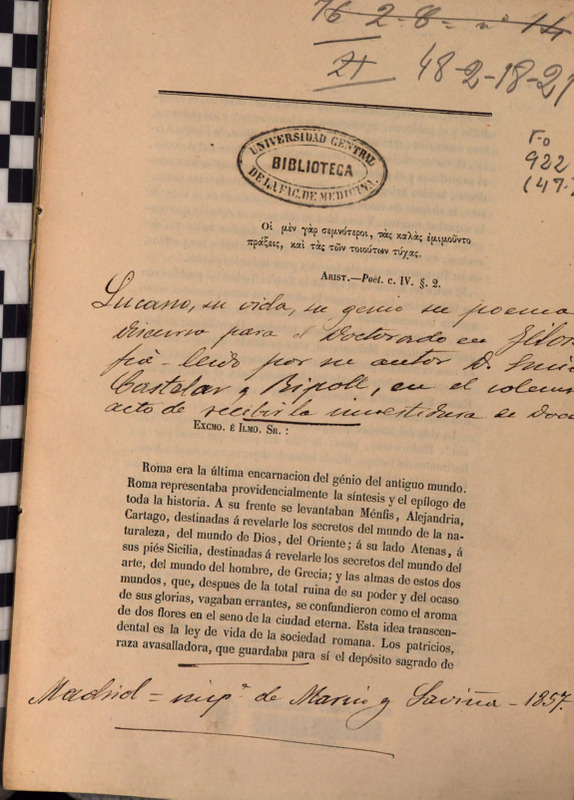 76 2-8= nº 14
21 48-2-18-21
UNIVERSIDAD CENTRAL
BIBLIOTECA
DE LA FAC. DE MEDICINA.
Fo
922
(47.
Οἱ μὲν γὰρ σεμνότεροι, τὰς καλὰς ἐμιμοῦντο
πράξεις, καὶ τὰς τῶν τοιούτων τύχας.
ARIST.—Poét. c. IV. §. 2.
Lucano, su vida, su genio su poema
Discurso para el Doctorado en
fia - leido por su autor D.
Castelar y Ripoll, en el
acto de recibir la investidura de
EXCMO. É ILMO. SR. :
Roma era la última encarnacion del génio del antiguo mundo.
Roma representaba providencialmente la síntesis y el epílogo de
toda la historia. A su frente se levantaban Ménfis, Alejandria,
Cartago, destinadas á revelarle los secretos del mundo de la na-
turaleza, del mundo de Dios, del Oriente; á su lado Atenas, á
sus piés Sicilia, destinadas á revelarle los secretos del mundo del
arte, del mundo del hombre, de Grecia; y las almas de estos dos
mundos, que, despues de la total ruina de su poder y del ocaso
de sus glorias, vagaban errantes, se confundieron como el aroma
de dos flores en el seno de la ciudad eterna. Esta idea transcen-
dental es la ley de vida de la sociedad romana. Los patricios,
raza avasalladora, que guardaba para sí el depósito sagrado de
Madrid = impª de Marin y Laviña - 1857.